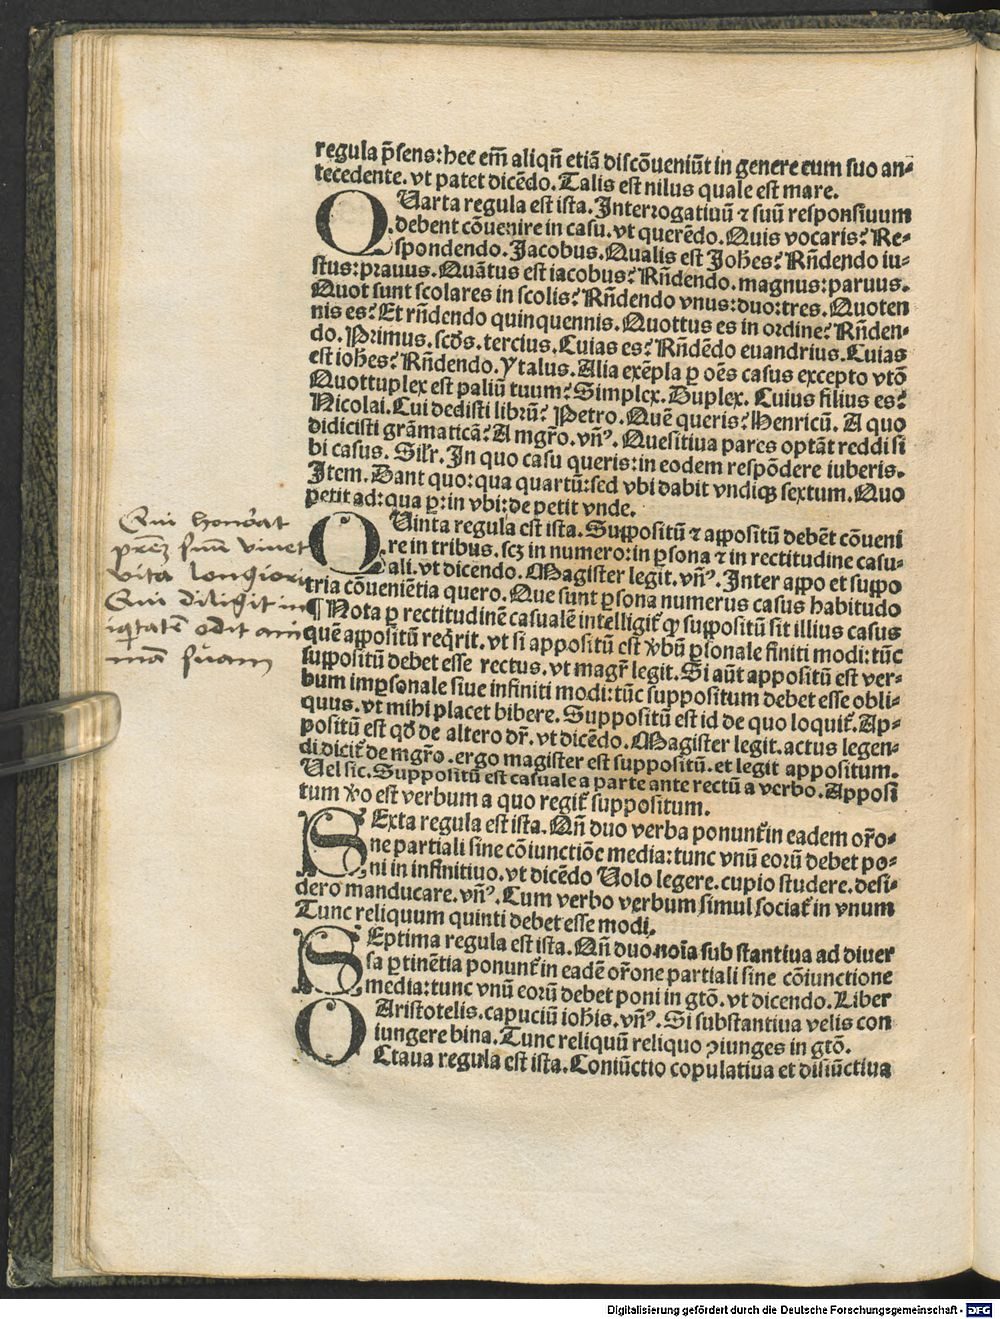 regula p̄sens: hec em̄ aliqñ etiā discōueniūt in genere cum suo an-
tecedente. vt patet dicēdo. Talis est nilus quale est mare.
QUarta regula est ista. Interrogatiuū ⁊ suū responsiuum
debent cōuenire in casu. vt querēdo. Quis vocaris? Re-
spondendo. Jacobus. Qualis est Johēs? Rñdendo iu-
stus: prauus. Quātus est iacobus? Rñdendo. magnus: paruus.
Quot sunt scolares in scolis? Rñdendo vnus: duo: tres. Quoten
nis es? Et rñdendo quinquennis. Quottus es in ordine? Rñden-
do. Primus. scđs. tercius. Cuias es? Rñdēdo euandrius. Cuias
est iohēs? Rñdendo. Ytalus. Alia exēpla ꝑ oēs casus excepto vtō
Quottuplex est paliū tuum? Simplex. Duplex. Cuius filius es?
Nicolai. Cui dedisti librū? Petro. Quē queris? Henricū. A quo
didicisti grāmaticā? A mgr̄o. vñꝰ. Quesitiua pares optāt reddi si
bi casus. Silr̄. In quo casu queris: in eodem respōdere iuberis.
Item. Dant quo: qua quartū: sed vbi dabit vndiqꝫ sextum. Quo
petit ad: qua ꝑ: in vbi: de petit vnde.
QUinta regula est ista. Suppositū ⁊ appositū debēt cōueni
re in tribus. scꝫ in numero: in ꝑsona ⁊ in rectitudine casu-
ali. vt dicendo. Magister legit. vñꝰ. Inter appo et suppo
tria cōueniētia quero. Que sunt ꝑsona numerus casus habitudo
¶ Nota ꝑ rectitudinē casualē intelligit̄ ꝙ suppositū sit illius casus
quē appositū reqrit. vt si appositū est v̄bū ꝑsonale finiti modi: tūc
suppositū debet esse rectus. vt magr̄ legit. Si aūt appositū est ver-
bum imꝑsonale siue infiniti modi: tūc suppositum debet esse obli-
quus. vt mihi placet bibere. Suppositū est id de quo loquit̄. Ap-
positū est qđ de altero dr̄. vt dicēdo. Magister legit. actus legen-
di dicit̄ de mgr̄o. ergo magister est suppositū. et legit appositum.
Uel sic. Suppositū est casuale a parte ante rectū a verbo. Apposi
tum v̄o est verbum a quo regit̄ suppositum.
SExta regula est ista. Qñ duo verba ponunt̄ in eadem or̄o-
ne partiali sine cōiunctiōe media: tunc vnū eorū debet po-
ni in infinitiuo. vt dicēdo Uolo legere. cupio studere. desi-
dero manducare. vñꝰ. Cum verbo verbum simul sociat̄ in vnum
Tunc reliquum quinti debet esse modi.
SEptima regula est ista. Qñ duo noīa substantiua ad diuer
sa ꝑtinētia ponunt̄ in eadē or̄one partiali sine cōiunctione
media: tunc vnū eorū debet poni in gtō. vt dicendo. Liber
Aristotelis. capuciū iohīs. vñꝰ. Si substantiua velis con
iungere bina. Tunc reliquū reliquo ꝯiunges in gtō.
OCtaua regula est ista. Coniūctio copulatiua et disiūctiua
Qui honorat
prēꝫ suū viuet
vitā longiorē
Qui diligit in
iq̄tatē odit ani
mā suam
Digitalisierung gefördert durch die Deutsche Forschungsgemeinschaft - DFG